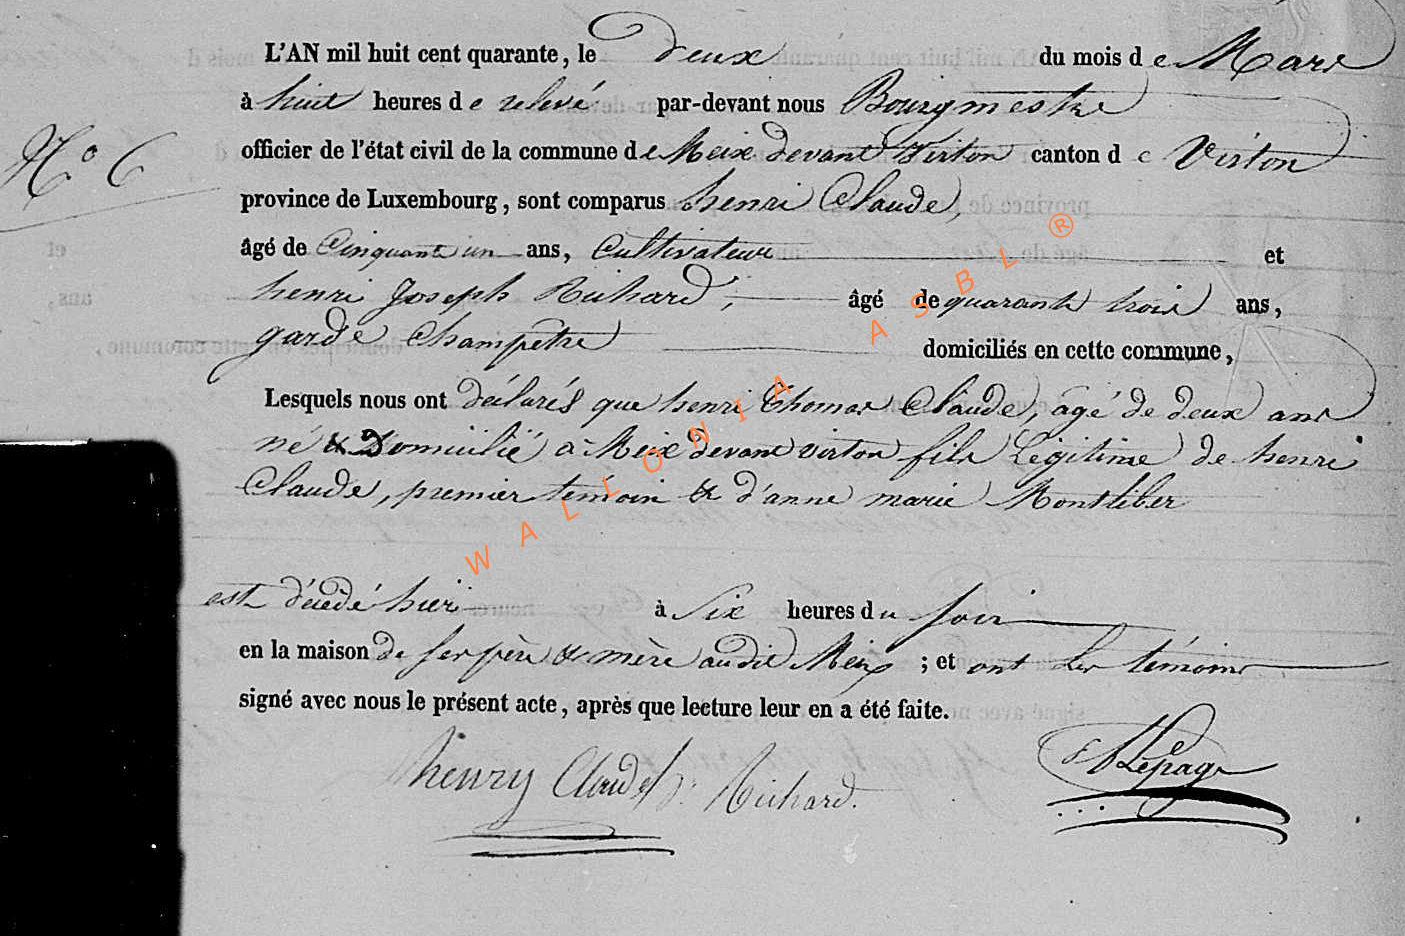 L'AN mil huit cent quarante, le deux du mois de Mars
à huit heures de relevé par-devant nous Bourgmestre
N° 6
officier de l'état civil de la commune de Meix devant Virton canton de Virton
province de Luxembourg, sont comparus henri Claude,
âgé de Cinquante un ans, Cultivateur et
henri Joseph Richard, âgé de quarante trois ans,
garde Champêtre domiciliés en cette commune,
Lesquels nous ont déclarés que henri Thomas Claude, âgé de deux ans
né & Domicilié a Meix devant virton fils Légitime de henri
Claude, premier temoin & d'anne marie Montliber
est décédé hier à Six heures du soir
en la maison de ses père & mère audit Meix ; et ont les témoins
signé avec nous le présent acte, après que lecture leur en a été faite.
henry Claude Richard. Lepage
WALLONIA ASBL ®